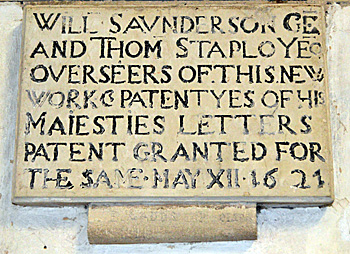 WILL SAVNDERSON GE
AND THOM STAPLOYE
OVERSEERS OF THIS NEW
WORK & PATENTYES OF HIS
MAIESTIES LETTERS
PATENT GRANTED FOR
THE SAME · MAY XII · 1621